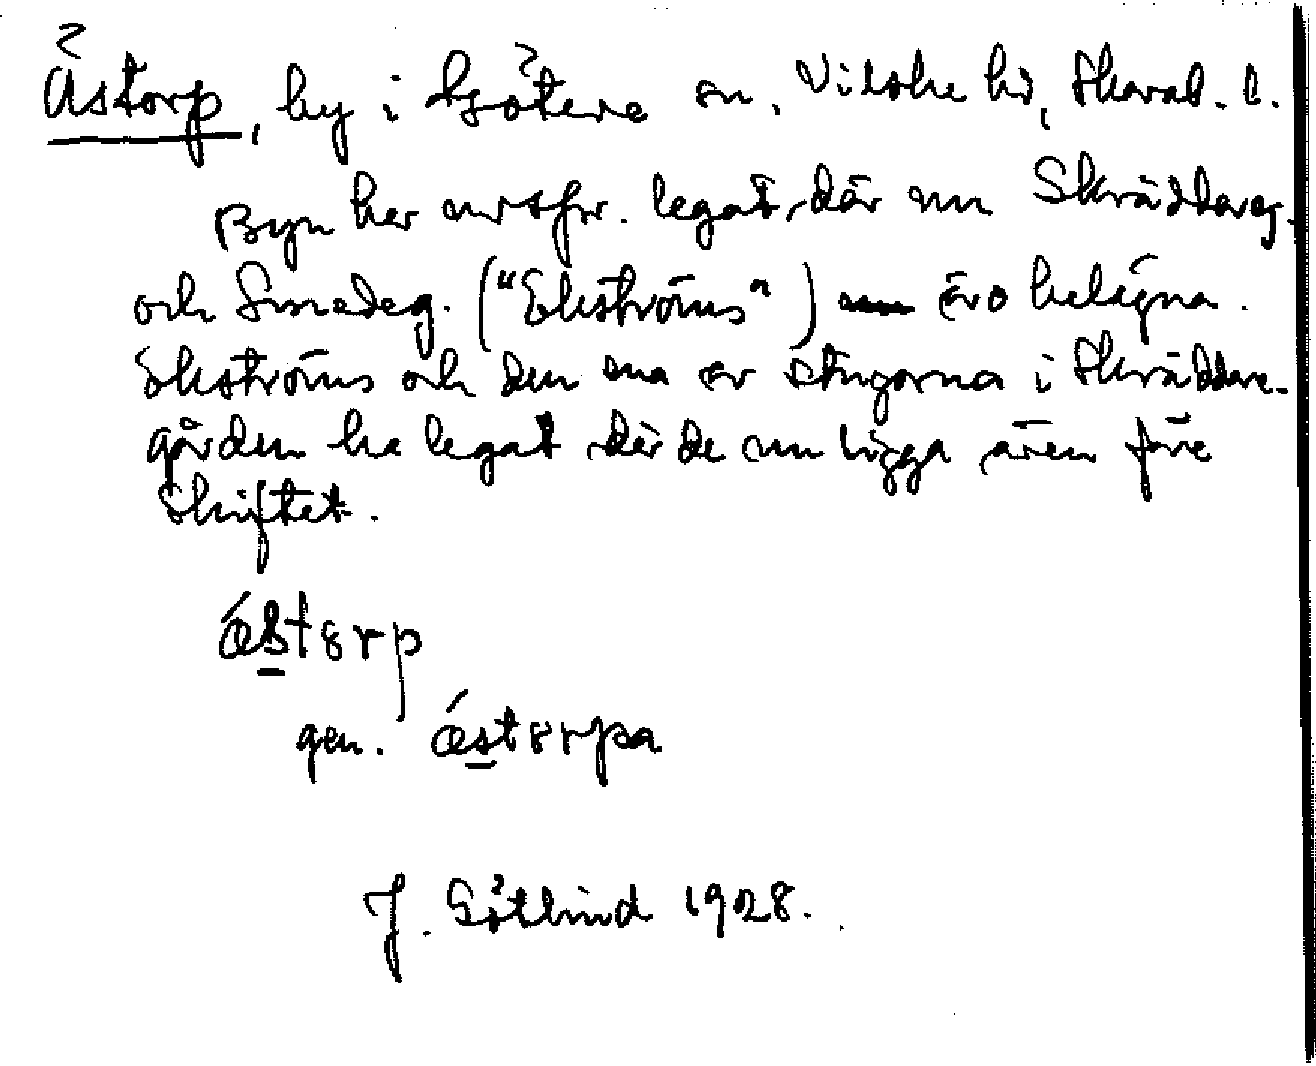 Åstorp, by i Götene sn. Vilske hd, Skarab. l.
Byn har urspr. legat, där nu Skräddareg.
och Smedeg. ("Ekströms") äro belägna.
Ekströms och den ena av stugorna i Skräddare-
gården ha legat där de nu ligga även före
skiftet.
ǽstorp
gen. ǽstorpa
J. Götlind 1928.